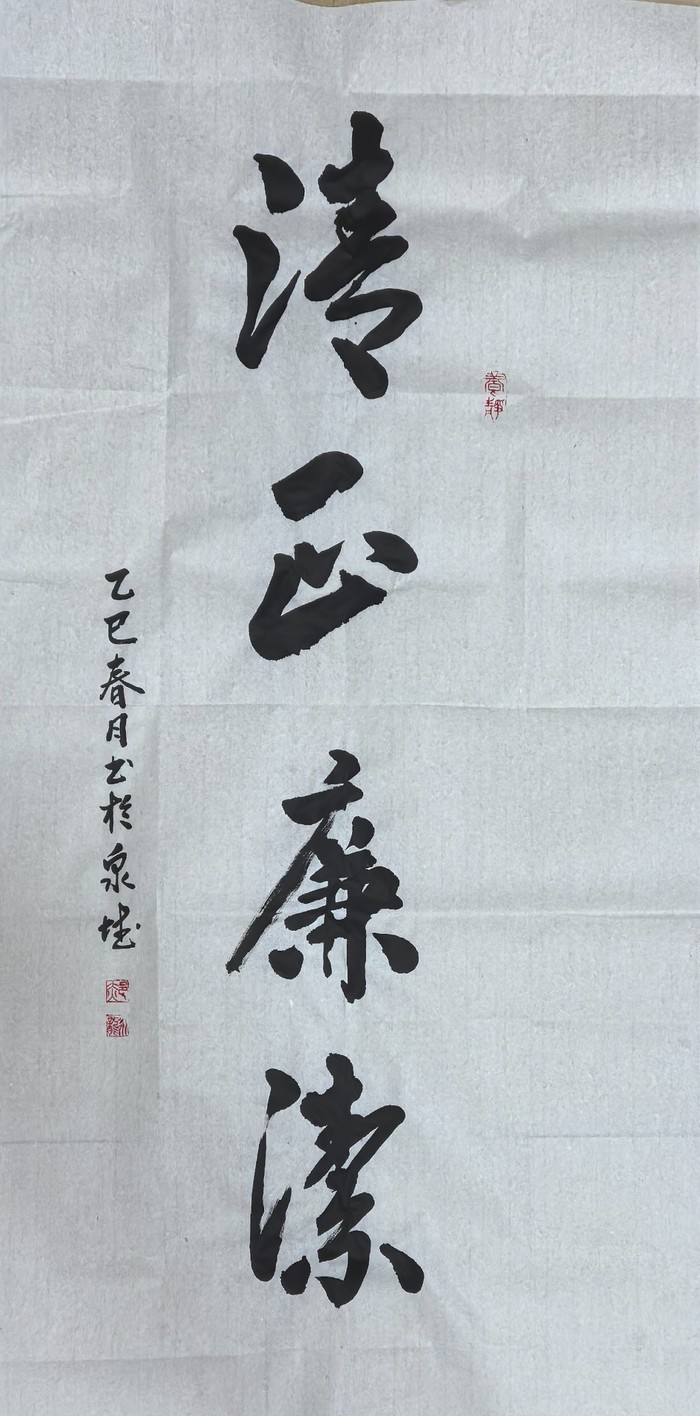 清正廉潔
養靜
乙巳春月书於泉城